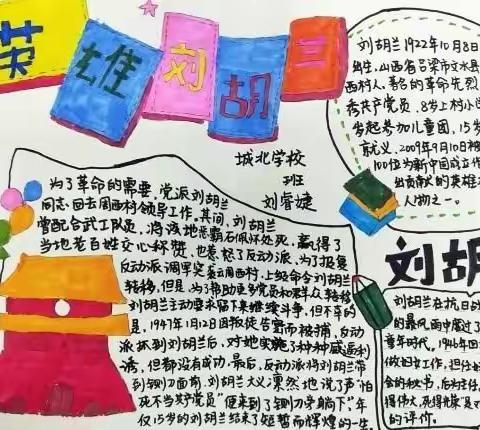 英雄刘胡兰
城北学校
班
刘誉婕
刘胡兰1922年10月8日
出生,山西省吕梁市文水县
西村人,著名的革命先烈
秀共产党员,8岁上村小学
岁起参加儿童团,15岁
就义,2009年9月10日被
100位为新中国成立作
出贡献的英雄
人物之一。
为了革命的需要,党派刘胡兰
同志回云周西村领导工作,其间,刘胡兰
曾配合武工队员,将该地恶霸石佩怀处死,赢得了
当地老百姓交心称赞,也惹怒了反动派,为了报复
反动派调军突袭云周西村,上级命令刘胡兰
转移,但是,为了帮助更多党员和群众转移
刘胡兰主动要求留下来继续斗争,但不幸的
是,1947年1月12日因叛徒告密而被捕,反动
派抓到刘胡兰后,对她实施了种种威逼利
诱,但都没有成功,最后,反动派将刘胡兰带
到铡刀面前,刘胡兰大义凛然地说了声“怕
死不当共产党员”便来到了铡刀旁躺下,年
仅15岁的刘胡兰结束了短暂而辉煌的一生
刘胡
刘胡兰在抗日战
的暴风雨中度过了
童年时代,1946年回
做妇女工作,担任
会的秘书,后为主任,
得伟大,死得光荣是对
的评价。